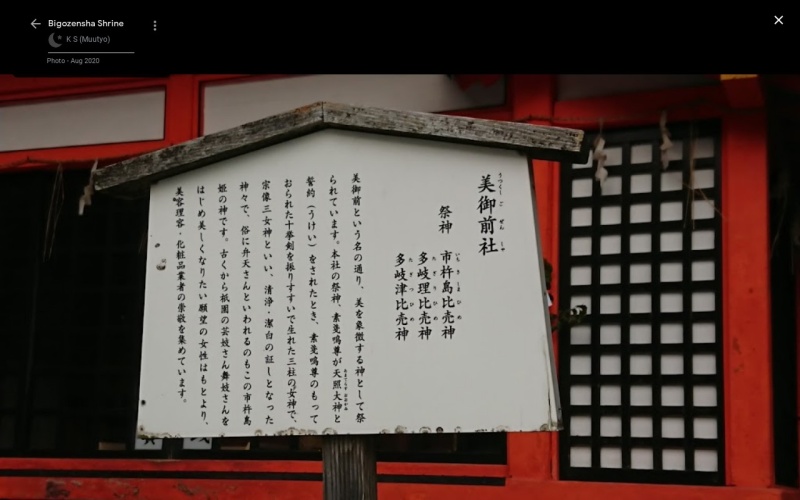 Bigozensha Shrine
K S (Muutyo)
Photo - Aug 2020
美御前社
うつくしごぜんしゃ
祭神 市杵島比売神
いちきしまひめ
多岐理比売神
たぎりひめ
多岐津比売神
たぎつひめ
美御前という名の通り、美を象徴する神として祭
られています。本社の祭神、素戔嗚尊が天照大神と
誓約(うけい)をされたとき、素戔嗚尊のもって
おられた十拳剣を振りすすいで生れた三柱の女神で、
宗像三女神といい、清浄・潔白の証しとなった
神々で、俗に弁天さんといわれるのもこの市杵島
姫の神です。古くから祇園の芸妓さん舞妓さんを
はじめ美しくなりたい願望の女性はもとより、
美容理容・化粧品業者の崇敬を集めています。